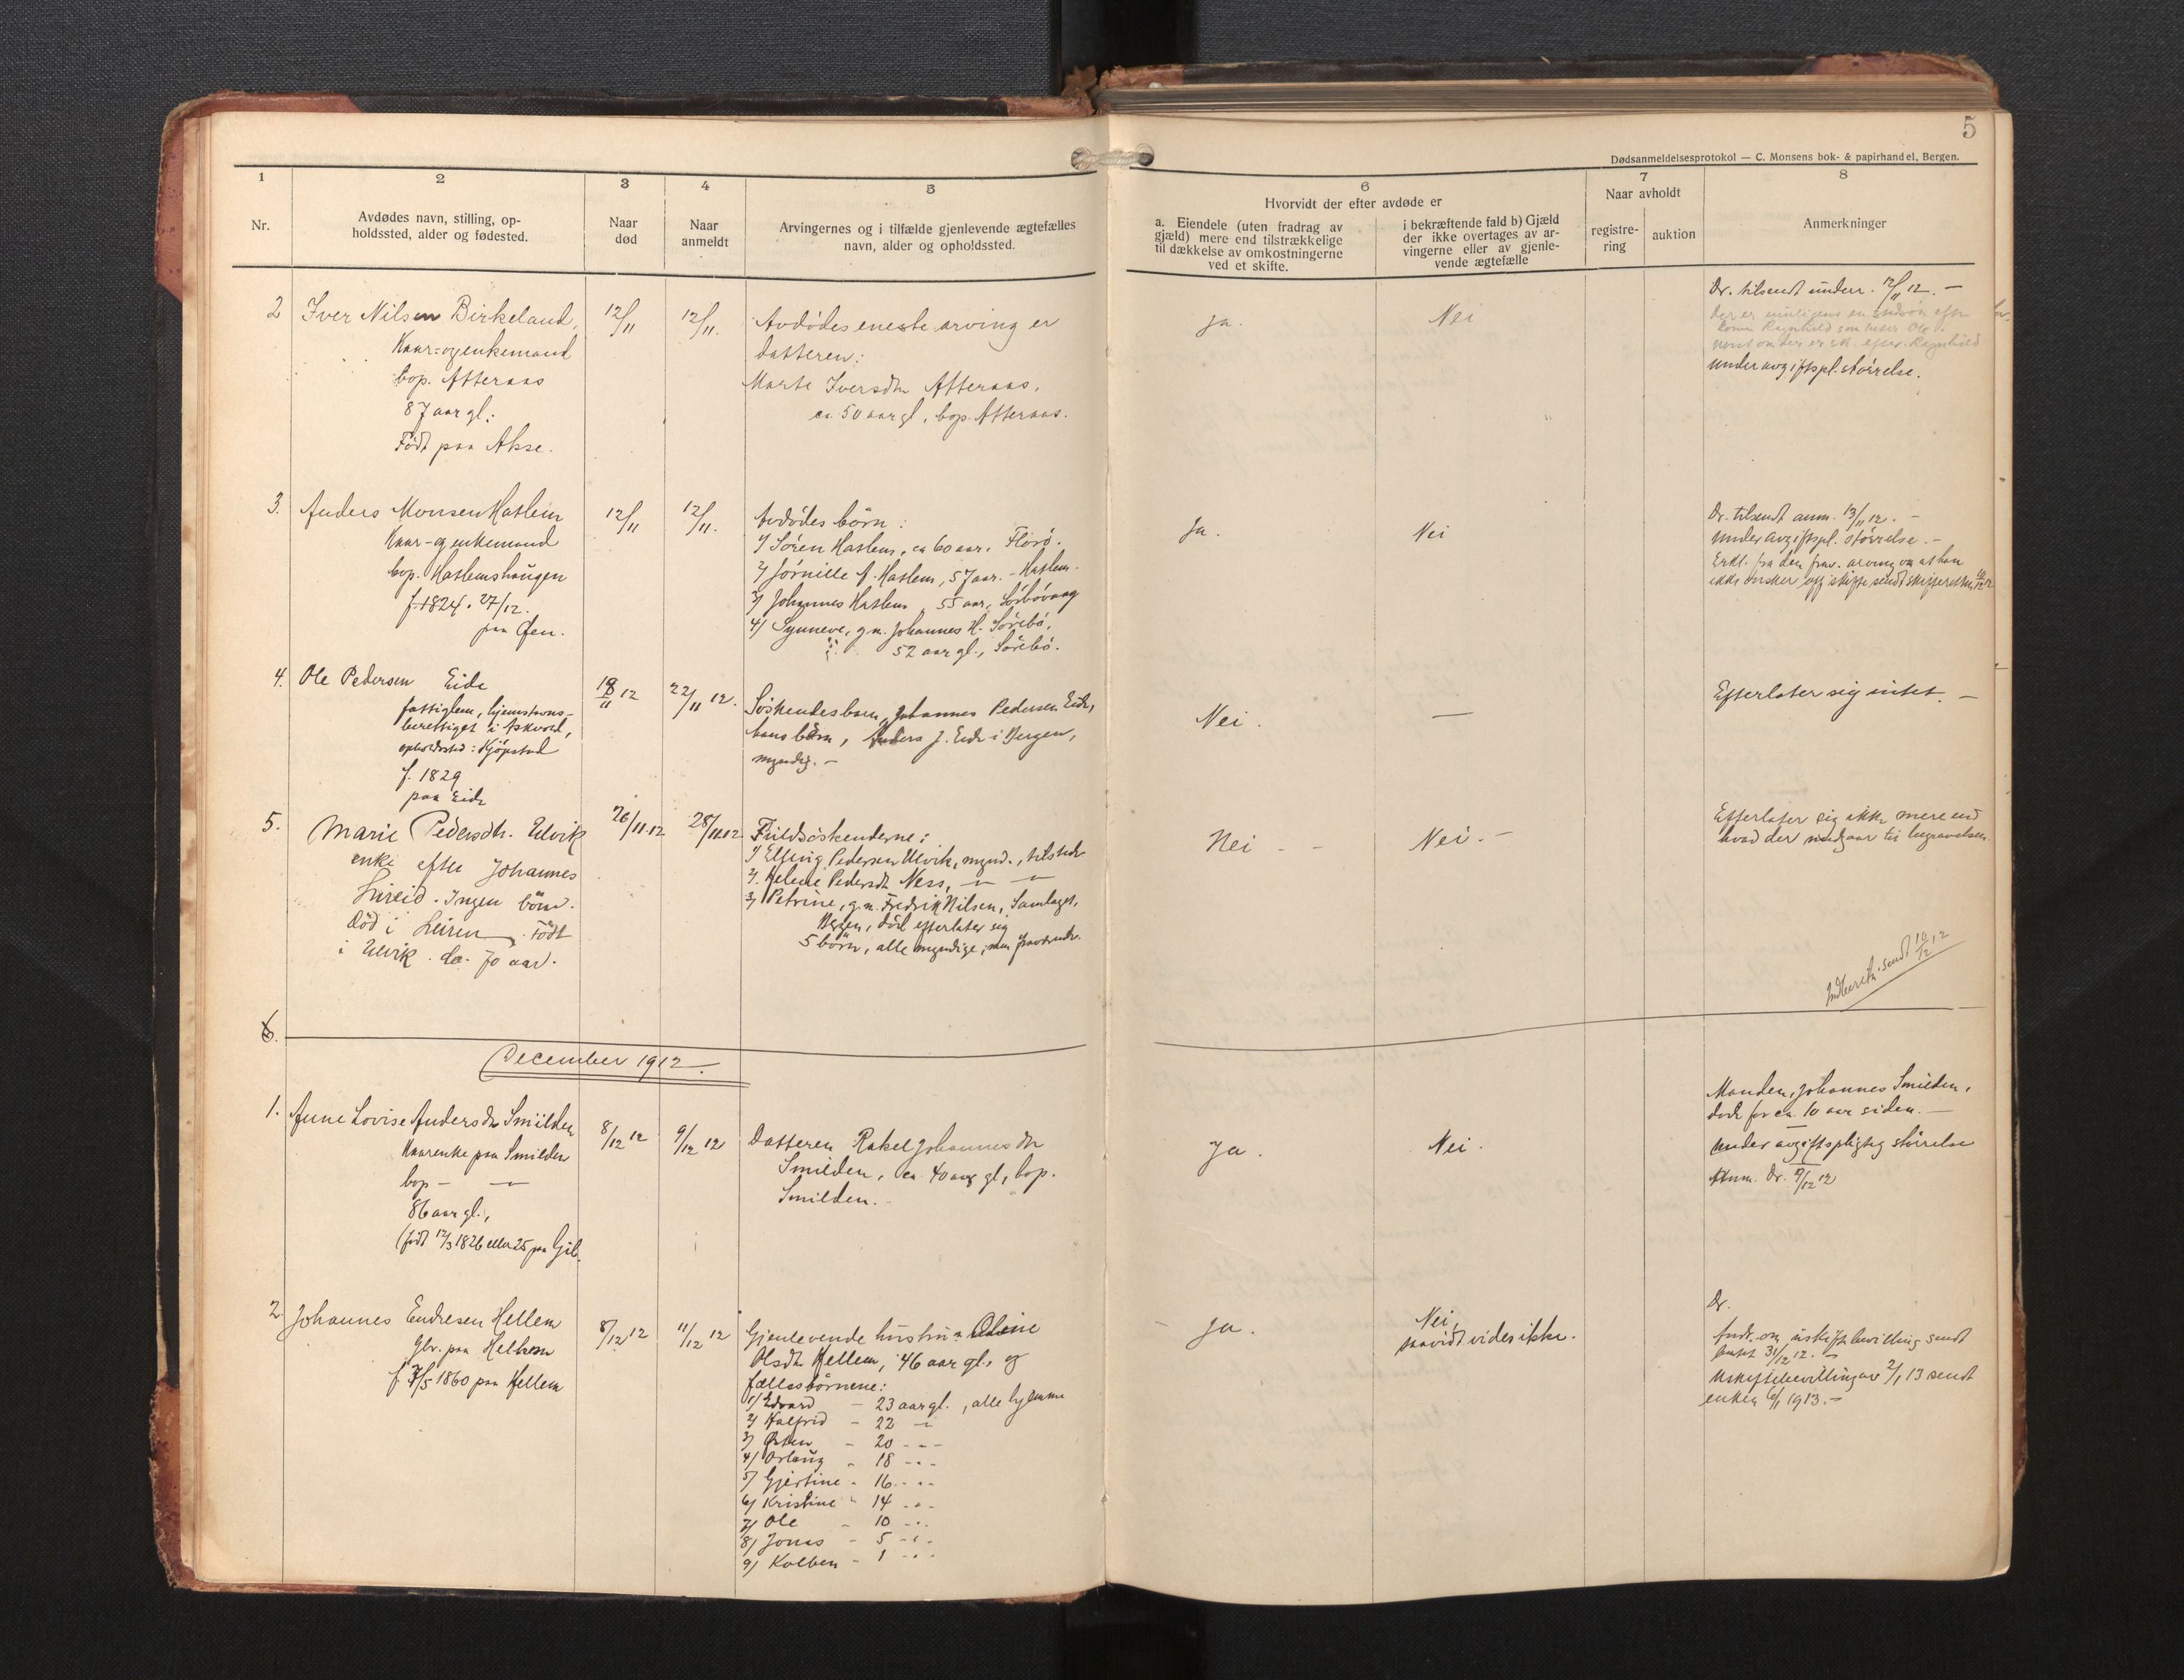 5
Dødsanmeldelsesprotokol — C. Monsens bok- & papirhandel, Bergen.
1
Nr.
2
Avdødes navn, stilling, op-
holdssted, alder og fødested.
3
Naar
død
4
Naar
anmeldt
5
Arvingernes og i tilfælde gjenlevende ægtefælles
navn, alder og opholdssted.
6
Hvorvidt der efter avdøde er
a. Eiendele (uten fradrag av
gjæld) mere end tilstrækkelige
til dækkelse av omkostningerne
ved et skifte.
i bekræftende fald b) Gjæld
der ikke overtages av ar-
vingerne eller av gjenle-
vende ægtefælle
7
Naar avholdt
registre-
ring
auktion
8
Anmerkninger
2 Iver Nilsen Birkeland,
Kaar- og enkemand
bop. Atteraas
87 aar gl.:
Født paa Akse.
12/11
12/11.
Avdødes eneste arving er
datteren:
Marte Iversdtr Atteraas,
ca. 50 aar gl, bop. Atteraas.
Ja.
Nei
Dr. tilsendt underr. 12/11 12. —
Under avgiftspl. størrelse.
3. Anders Monsen Hatlem
Kaar- og enkemand
bop. Hatlemshaugen
f. 1824. 27/12.
paa Øen.
12/11
12/11.
Avdødes børn:
1/ Søren Hatlem, ca 60 aar. Florø.
2/ Jørnille A. Hatlem, 57 aar. - Hatlem.
3/ Johannes Hatlem 55 aar, Sørbøvaag
4/ Synneve, g.m. Johannes H. Sørebø,
52 aar gl., Sørebø.
Ja.
Nei
Dr. tilsendt anm. 13/11 12. —
Under avgiftspl. størrelse. —
Erkl. fra den frav. arving om at han
ikke ønsker off. skifte sendt skifteretten
4. Ole Pedersen Eide
fattiglem, hjemstavns-
berettiget i Askvold,
opholdssted: Kjøpstad
f. 1829
paa Eide
18/11 12
22/11 12.
Søskendebarn, Johannes Pedersen Eide,
hans børn, Anders J. Eide i Bergen,
myndig. —
Nei.
—
Efterlater sig intet. —
5. Marie Pedersdtr. Ulvik
enke efter Johannes
Ingen børn.
Død i Leiren. Født
i Ulvik. ca. 70 aar.
26/11.12
28/11.12
Fuldsøskenderne:
1/ Elling Pedersen Ulvik, mynd., tilstede
2/. Helene Pedersdt Ness, — —
3/ Petrine, g.m. Fredrik Nilsen, Samlaget,
Bergen, død efterlater sig
5 børn, alle myndige, men fraværende.
Nei - -
Nei. —
Efterlater sig ikke mere end
hvad der medgaar til begravelsen.
Indberetn. sendt 10/12 12
6.
December 1912.
1. Anne Lovise Andersdtr Smilden
Kaarenke paa Smilden
bop - —
86 aar gl.,
(født 12/3 1826 eller 25 paa
8/12 12
9/12 12
Datteren Rakel Johannesdtr
Smilden, ca. 40 aar gl, bop.
Smilden.
Ja.
Nei.
Manden, Johannes Smilden,
døde for ca. 10 aar siden. —
Under avgiftspligtig størrelse
Anm. Dr. 9/12 12
2. Johannes Endresen Hellem
Gbr. paa Hellem
f. 7/5 1860 paa Hellem
8/12 12
11/12 12
Gjenlevende hustru: Oline
Olsdtr Hellem, 46 aar gl., og
fællesbørnene:
1/ Edvard - 23 aar gl. , alle hjemme
2/ Halfrid - 22 —
3/ Østen - 20 - - -
4/ Orlaug - 18 - - -
5/ Gjertine - 16 - - -
6/ Kristine - 14 - - -
7/ Ole - 10 - - -
8/ Jonas - 5 - - -
9/ Kolben - 1 - - -
Ja.
Nei,
saavidt vides ikke.
Dr.
Andr. om uskiftebevilling sendt
amtet 31/12 12. —
Uskiftebevilling av 2/1 13 sendt
enken 6/1 1913. —